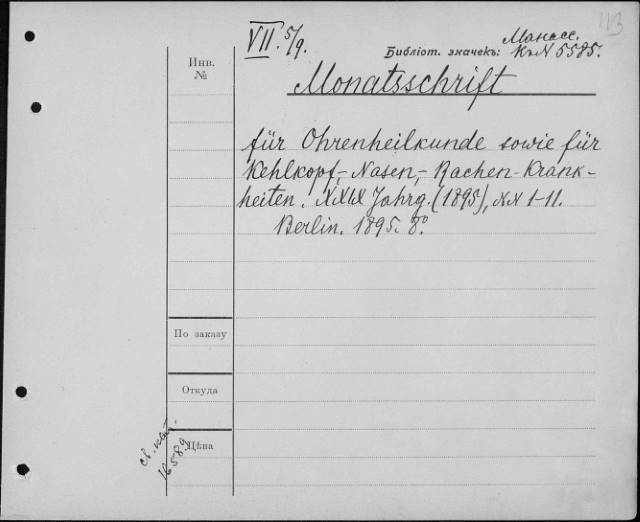 113
VII. 5/9.
Библіот. значекъ: Манасс.
К. N 5585.
Инв.
№
Monatsschrift
für Ohrenheilkunde sowie für
Kehlkopf,- Nasen,- Rachen-Krank-
heiten. XXIX Jahrg. (1895), NN 1-11.
Berlin. 1895. 8°.
По заказу
Откуда
Цѣна
св. кат.
16589